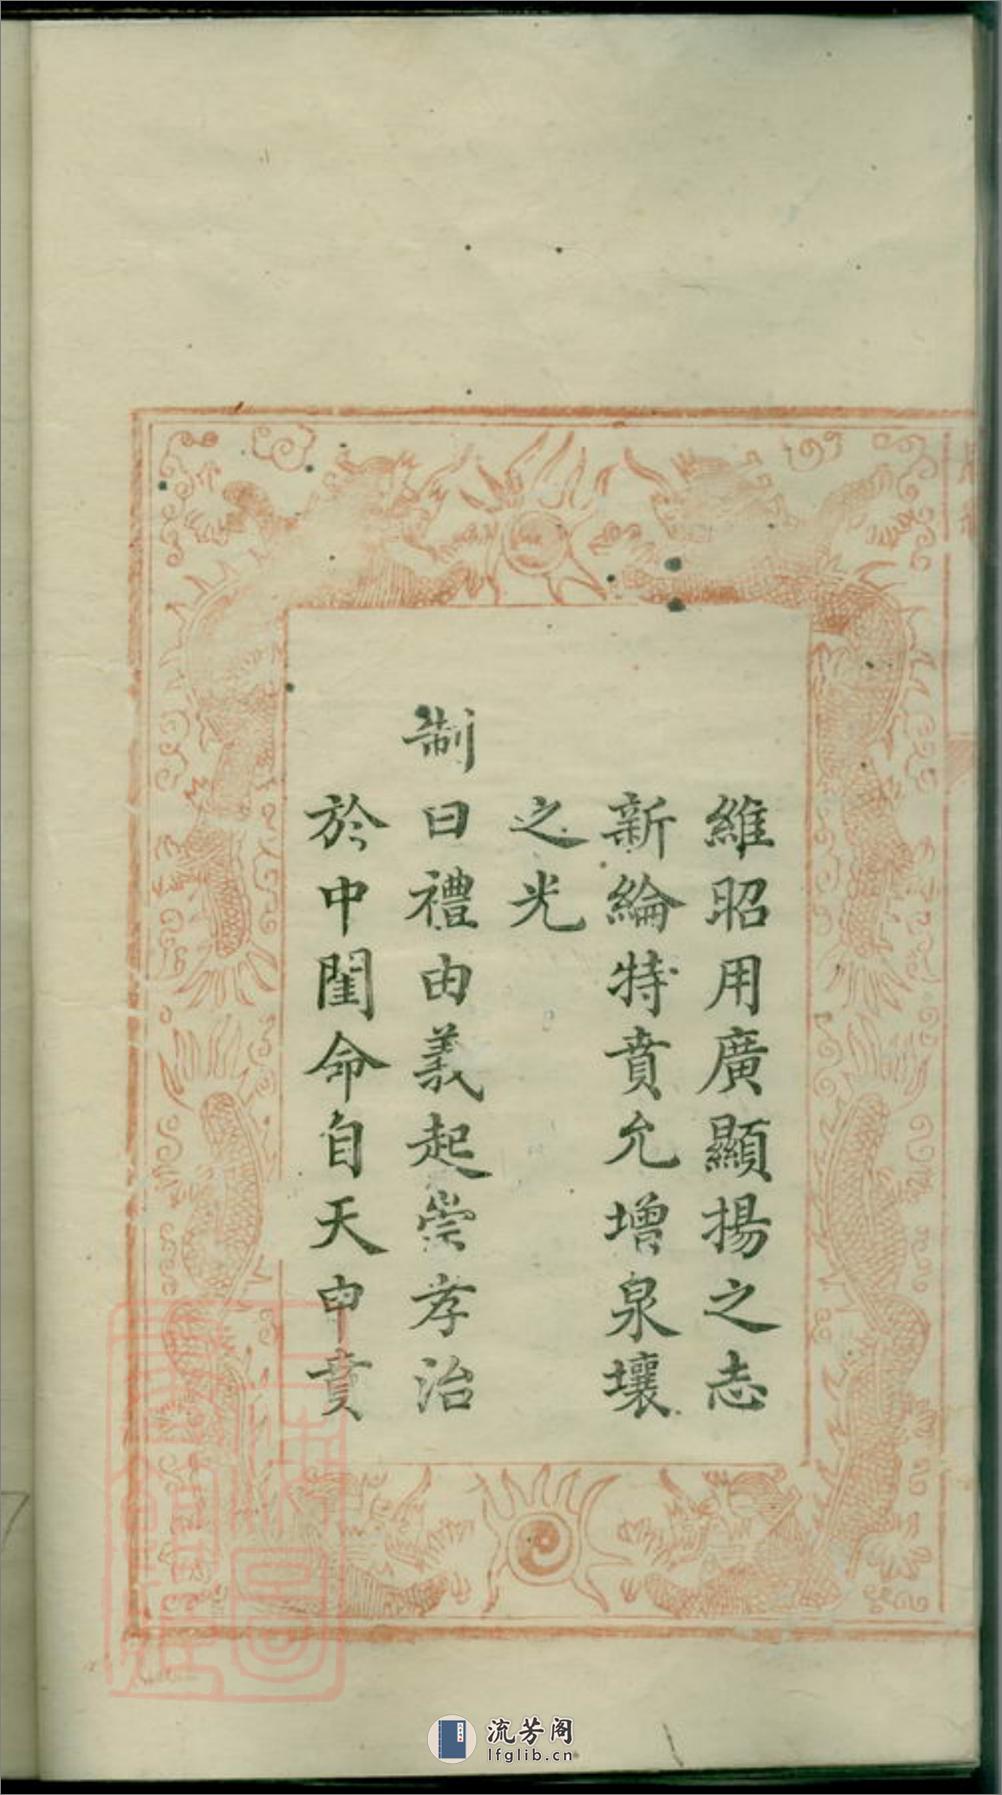 維昭用廣顯揚之志
新綸特賁允增泉壤
之光
制曰禮由義起崇孝治
於中閨命自天申賁
流芳阁
lfglib.cn